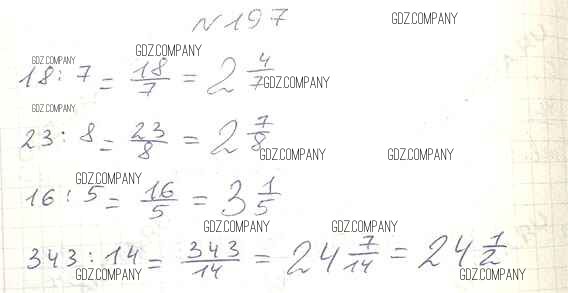 №197 GDZ.COMPANY
GDZ.COMPANY GDZ.COMPANY
18 : 7 = 18/7 = 2 4/7 GDZ.COMPANY
GDZ.COMPANY
23 : 8 = 23/8 = 2 7/8
GDZ.COMPANY GDZ.COMPANY
GDZ.COMPANY
16 : 5 = 16/5 = 3 1/5
GDZ.COMPANY GDZ.COMPANY
343 : 14 = 343/14 = 24 7/14 = 24 1/2
GDZ.COMPANY GDZ.COMPANY